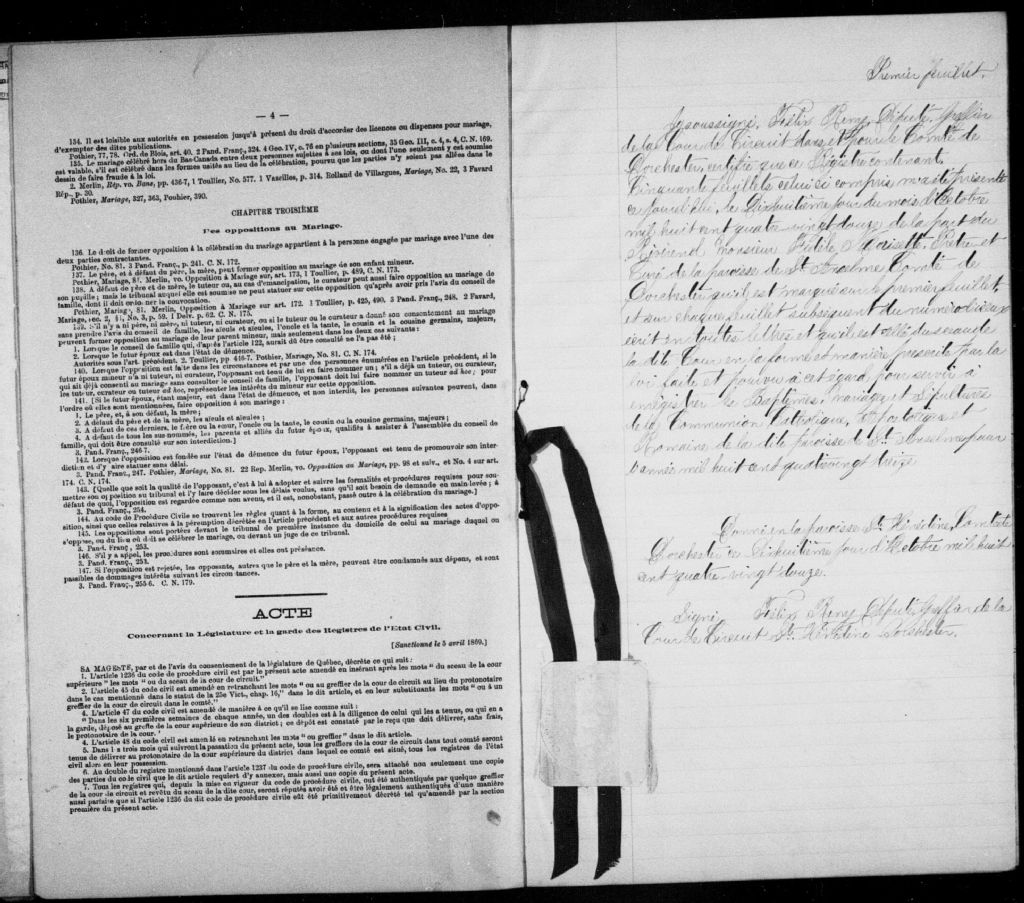 — 4 —
134. Il est loisible aux autorités en possession jusqu'à présent du droit d'accorder des licences ou dispenses pour mariage,
d'exempter des dites publications.
Pothier, 77, 78. Ord. de Blois, art. 40, 2 Pand. Franç., 324. 4 Geo. IV, c. 76 en plusieurs sections, 35 Geo. III, c. 4, s. 4, C. N. 169.
135. Le mariage célébré hors du Bas-Canada entre deux personnes sujettes à ses lois, ou dont l'une seulement y est soumise
est valable, s'il est célébré dans les formes usités au lieu de la célébration, pourvu que les parties n'y soient pas allées dans le
dessin de faire fraude à la loi.
2. Merlin, Rép. vo. Bans, pp. 436-7, 1 Toullier, No. 577. 1 Vazeilles, p. 314. Rolland de Villargues, Mariage, No. 22, 3 Favard
Rép., p. 30.
Pothier, Mariage, 327, 363, Pouhier, 390.
CHAPITRE TROISIÈME
Des oppositions au Mariage.
136. Le droit de former opposition à la célébration du mariage appartient à la personne engagée par mariage avec l'une des
deux parties contractantes.
Pothier, No. 81. 3 Pand. Franç., p. 241. C. N. 172.
137. Le père, et à défaut du père, la mère, peut former opposition au mariage de son enfant mineur.
Pothier, Mariage, 81. Merlin, vo. Opposition à Mariage sur art. 173, 1 Toullier, p. 489, C. N. 173.
138. A défaut de père et de mère, le tuteur ou, au cas d'émancipation, le curateur peut aussi faire opposition au mariage de
son pupille; mais le tribunal auquel elle est soumise ne peut statuer sur cette opposition qu'après avoir pris l'avis du conseil de
famille, dont il doit ordonner la convocation.
Pothier, Mariage, 81. Merlin, Opposition à Mariage sur art. 172. 1 Toullier, p. 425, 490. 3 Pand. Franç., 248. 2 Favard,
Mariage, sec. 2, §1, No. 3, p. 59. 1 Deiv. p. 62. C. N. 175.
139. S'il n'y a ni père, ni mère, ni tuteur, ni curateur, ou si le tuteur ou le curateur a donné son consentement au mariage
sans prendre l'avis du conseil de famille, les aïeuls et aïeules, l'oncle et la tante, le cousin et la cousine germains, majeurs,
peuvent former opposition au mariage de leur parent mineur, mais seulement dans les deux cas suivants:
1. Lorsque le conseil de famille qui, d'après l'article 122, aurait dû être consulté ne l'a pas été;
2. Lorsque le futur époux est dans l'état de démence.
Autorités sous l'art. précédent. 2. Toullier, pp 416-7. Pothier, Mariage, No. 81. C. N. 174.
140. Lorsque l'opposition est faite dans les circonstances et par une des personnes énumérées en l'article précédent, si le
futur époux mineur n'a ni tuteur, ni curateur, l'opposant est tenu de lui en faire nommer un; s'il a déjà un tuteur, ou curateur,
qui ait déjà consenti au mariage sans consulter le conseil de famille, l'opposant doit lui faire nommer un tuteur ad hoc; pour
les tuteur, curateur ou tuteur ad hoc, représenter les intérêts du mineur sur cette opposition.
141. [Si le futur époux, étant majeur, est dans l'état de démence, et non interdit, les personnes suivantes peuvent, dans
l'ordre où elles sont mentionnées, faire opposition à son mariage:
1. Le père, et, à son défaut, la mère;
2. A défaut du père et de la mère, les aïeuls et aïeules;
3. A défaut de ces derniers, le frère ou la sœur, l'oncle ou la tante, le cousin ou la cousine germains, majeurs;
4. A défaut de tous les sus-nommés, les parents et alliés du futur époux, qualifiés à assister à l'assemblée du conseil de
famille, qui doit être consulté sur son interdiction.]
3. Pand. Franç., 246-7.
142. Lorsque l'opposition est fondée sur l'état de démence du futur époux, l'opposant est tenu de promouvoir son inter-
diction et d'y faire statuer sans délai.
3. Pand. Franç., 247. Pothier, Mariage, No. 81. 22 Rep. Merlin, vo. Opposition au Mariage, pp. 98 et suiv., et No. 4 sur art.
174. C. N. 174.
143. [Quelle que soit la qualité de l'opposant, c'est à lui à adopter et suivre les formalités et procédures requises pour sou-
mettre son opposition au tribunal et l'y faire décider sous les délais voulus, sans qu'il soit besoin de demande en main-levée; à
défaut de quoi, l'opposition est regardée comme non avenu, et il est, nonobstant, passé outre à la célébration du mariage.]
3. Pand. Franç., 254.
144. Au code de Procédure Civile se trouvent les règles quant à la forme, au contenu et à la signification des actes d'oppo-
sition, ainsi que celles relatives à la péremption décrétée en l'article précédent et aux autres procédures requises
145. Les oppositions sont portées devant le tribunal de première instance du domicile de celui au mariage duquel on
s'oppose, ou du lieu où doit se célébrer le mariage, ou devant un juge de ce tribunal.
3. Pand. Franç., 253.
146. S'il y a appel, les procédures sont sommaires et elles ont préséance.
3. Pand. Franç., 253.
147. Si l'opposition est rejetée, les opposants, autres que le père et la mère, peuvent être condamnés aux dépens, et sont
passibles de dommages intérêts suivant les circonstances.
3. Pand. Franç., 255-6. C. N. 179.
ACTE
Concernant la Législature et la garde des Registres de l'Etat Civil.
[Sanctionné le 5 avril 1869.]
SA MAGESTE, par et de l'avis du consentement de la législature de Québec, décrète ce qui suit:
1. L'article 1236 du code de procédure civil est par le présent acte amendé en insérant après les mots "du sceau de la cour
supérieure" les mots "ou du sceau de la cour de circuit."
2. L'article 45 du code civil est amendé en retranchant les mots "ou au greffier de la cour de circuit au lieu du protonotaire
dans le cas mentionné dans le statut de la 25e Vict., chap. 16," dans le dit article, et en leur substituants les mots "ou à un
greffier de la cour de circuit dans le comté."
4. L'article 47 du code civil est amendé de manière à ce qu'il se lise comme suit:
"Dans les six premières semaines de chaque année, un des doubles est à la diligence de celui qui les a tenus, ou qui en a
la garde, déposé au greffe de la cour supérieure de son district; ce dépôt est constaté par le reçu que doit délivrer, sans frais,
le protonotaire de la cour."
4. L'article 48 du code civil est amendé en retranchant les mots "ou greffier" dans le dit article.
5. Dans les trois mois qui suivront la passation du présent acte, tous les greffiers de la cour de circuit dans tout comté seront
tenus de délivrer au protonotaire de la cour supérieure du district dans lequel ce comté est situé, tous les registres de l'état
civil alors en leur possession.
6. Au double du registre mentionné dans l'article 1237 du code de procédure civile, sera attaché non seulement une copie
des parties du code civil que le dit article requiert d'y annexer, mais aussi une copie du présent acte.
7. Tous les registres qui, depuis la mise en vigueur du code de procédure civile, ont été authentiqués par quelque greffier
de la cour de circuit et revêtu du sceau de la dite cour, seront réputés avoir été et être légalement authentiqués d'une manière
aussi parfaite que si l'article 1236 du dit code de procédure civile eût été primitivement décrété tel qu'amendé par la section
première du présent acte.
Premier feuillet.
Je soussigné, Félix Remy, Député Greffier
de la Cour de Circuit dans et pour le Comté de
Dorchester, certifie que ce Registre contenant
Cinquante feuillets celui ci compris m'a été présenté
ce jourd'hui, le Dixhuitième jour du mois d'Octobre
mil huit cent quatre vingt douze de la part du
Révérend Monsieur Odilon Marsette Prêtre et
Curé de la paroisse de St. Anselme Comté de
Dorchester qu'il est marqué sur le premier feuillet
et sur chaque feuillet subséquent du numéro d'icieux
écrit en toutes lettres et qu'il est scellé du sceau de
la dite Cour en la forme et manière prescrite par la
Loi faite et pourvu à cet égard, pour servir à
enregistrer les Baptêmes, mariages et Sépultures
de la Communion Catholique, Apostolique et
Romaine de la dite paroisse de St. Anselme pour
l'année mil huit cent quatre vingt treize.
Donné en la paroisse Ste. Hénédine, Comté de
Dorchester ce Dixhuitième jour d'Octobre mil huit
cent quatre-vingt douze.
Signé Félix Remy Député Greffier de la
Cour de Circuit Ste. Hénédine Dorchester.